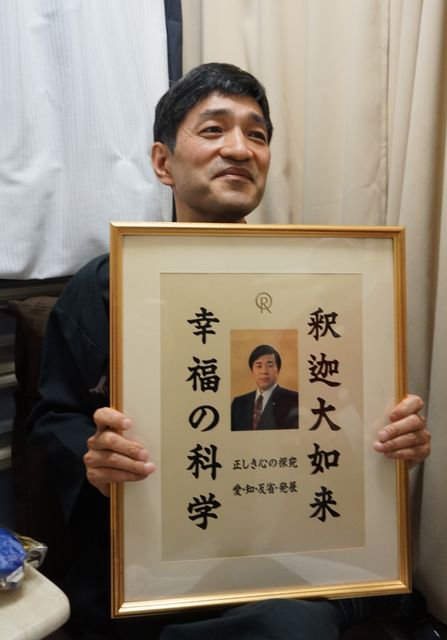 釈迦大如来
幸福の科学
正しき心の探究
愛・知・反省・発展